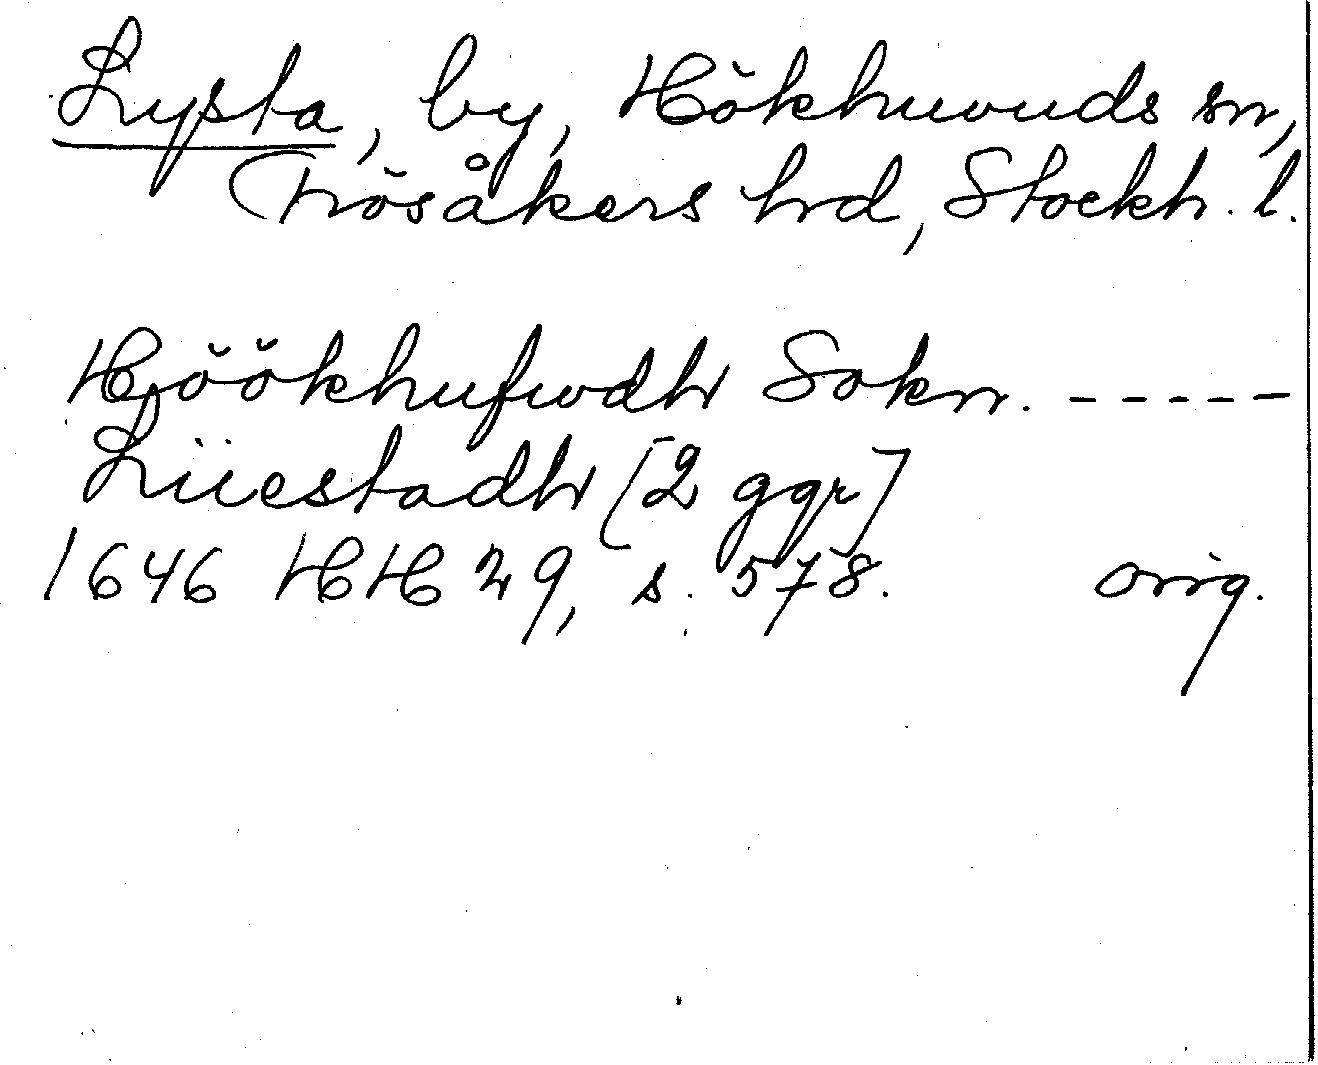 Lysta, by, Hökhuvuds sn,
Frösåkers hd, Stockh. l.
Höökhufwdh Sokn. -----
Lüestadh [2 ggr]
1646 HH 29, s. 578. orig.